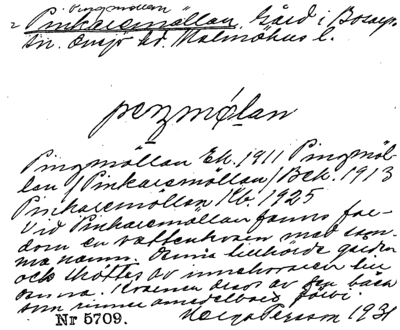 "Pingmöllan"
Pinkaremöllan, Gård i Bosarp
sn. Onsjö hd. Malmöhus l.
pezmǿlan
Pingmöllan Ek. 1911 Pingmöl-
lan /Pinkaremöllan/ Bek. 1913
Pinkaremöllan Kb. 1925
Vid Pinkaremöllan fanns for-
dom en vattenkvarn med sam-
ma namn. Denna tillhörde gården
och sköttes av innehavaren till
denna. Kvarnen drevs av den bäck
som rinner omedelbart förbi.
Nr 5709. Helge Persson 1931